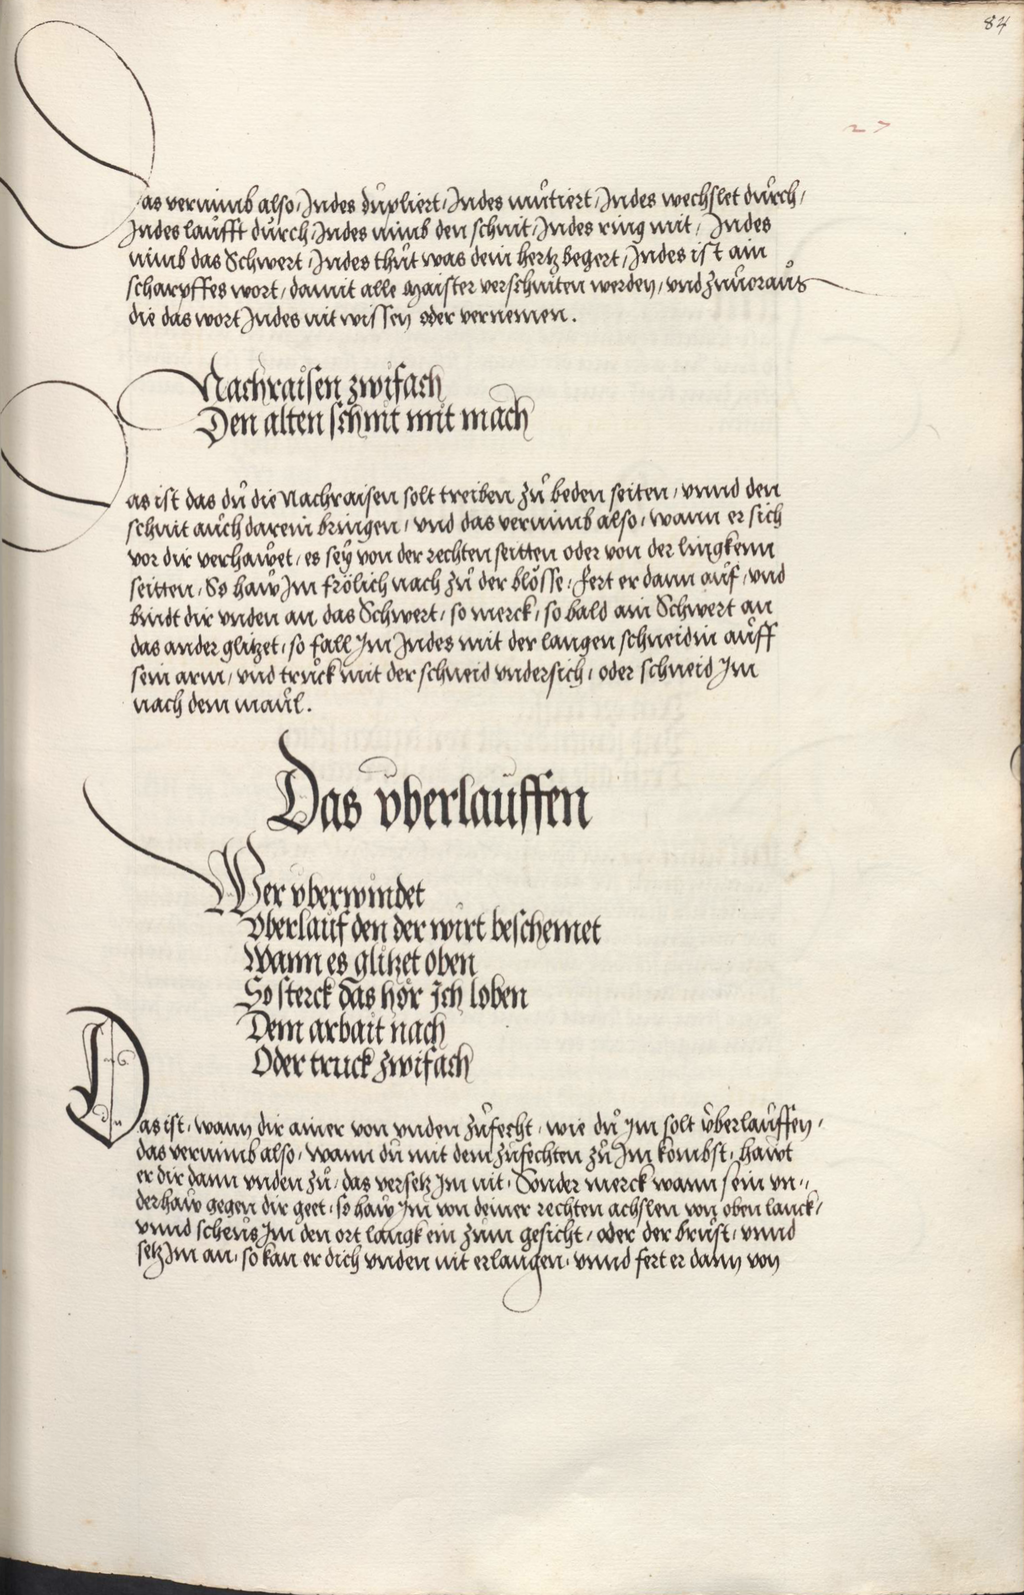 84
27
Das vernimb also, Indes dupliert, Indes mutiert, Indes wechslet durch,
Indes laufft durch, Indes nimb den schnit, Indes ring mit, Indes
nimb das Schwert, Indes thut was dein hertz begert, Indes ist ain
scharpffes wort, damit alle Maister verschniten werden, und zuuoraus
die das wort Indes nit wissen oder vernemen.
Nachraisen zwifach
Den alten schnit mit mach
Das ist das dů die Nachraisen solt treiben zů beden seiten, vnnd den
schnit auch darein bringen, vnd das vernimb also, wann er sich
vor dir verhawet, es seÿ von der rechten seitten oder von der lingkenn
seitten, So haw Im frölich nach zů der blösse, fert er dann auf, vnd
bindt dir vnden an das Schwert, so merck, so bald ain Schwert an
das ander glitzet, so fall Im Indes mit der langen schneidin auff
sein arm, vnd truck mit der schneid vndersich, oder schneid Im
nach dem maul.
Das vberlauffen
Wer vberwindet
Vberlauf den der wirt beschemet
Wann es glitzet oben
So sterck das hör Ich loben
Dem arbait nach
Oder truck zwifach
Das ist, wann dir ainer von vnden zůfecht, wie dů Im solt vberlauffen,
das vernimb also, wann dů mit dem zůfechten zů Im kombst, hawt
er dir dann vnden zů, das versetz Im nit, Sonder merck wann sein vn,,
derhaw gegen dir geet, so haw Im von deiner rechten achslen von oben lanck,
vnnd scheus Im den ort langk ein zum gesicht, oder der brust, vnnd
setz Im an, so kan er dich vnden nit erlangen, vnnd fert er dann von